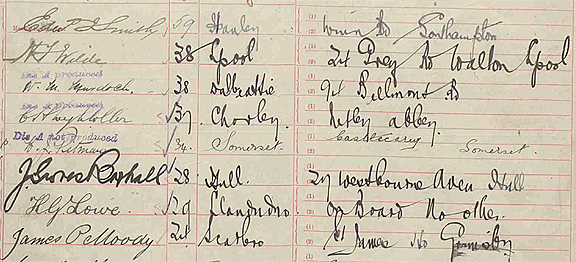 Edwd J Smith 59 Hanley Winn Rd Southampton
H T Wilde 38 Lpool 24 Grey Rd Walton Lpool
Dis A produced
W. M. Murdoch. 38 Dalbeattie 94 Belmont Rd
Dis A produced
C H Lightoller 37 Chorley. Netley Abbey.
Dis A not produced
H. J. Pitman 34. Somerset. Castlecary Somerset.
J. Groves Boxhall 28 Hull. 27 Westbourne Aven Hull
H. G. Lowe. 29 Llandudno. On Board No other.
James P. Moody 24 Scarbro St James Ho Grimsby